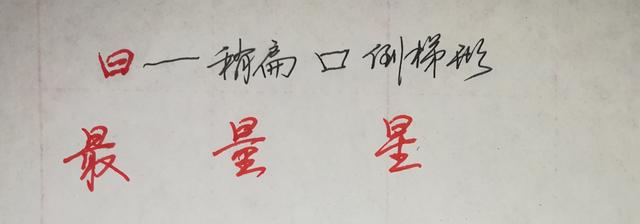 曰一稍扁口倒梯形
最 量 星